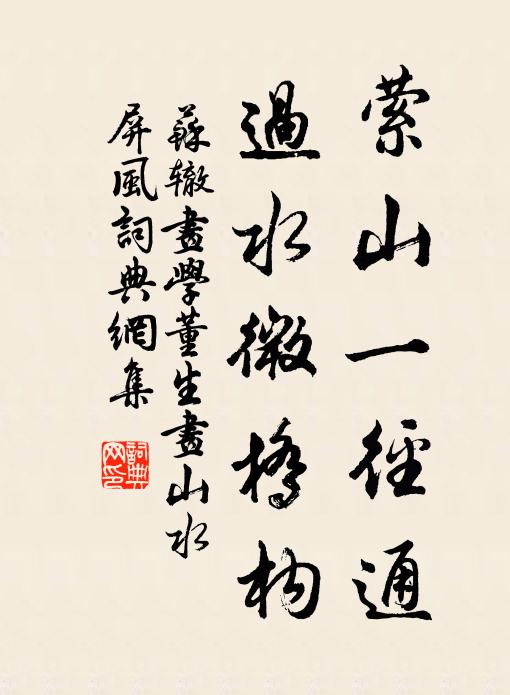 萦山一徑通
過水微橋构
蘇辙畫學董生畫山水
屏風詞典網集
詞典网印